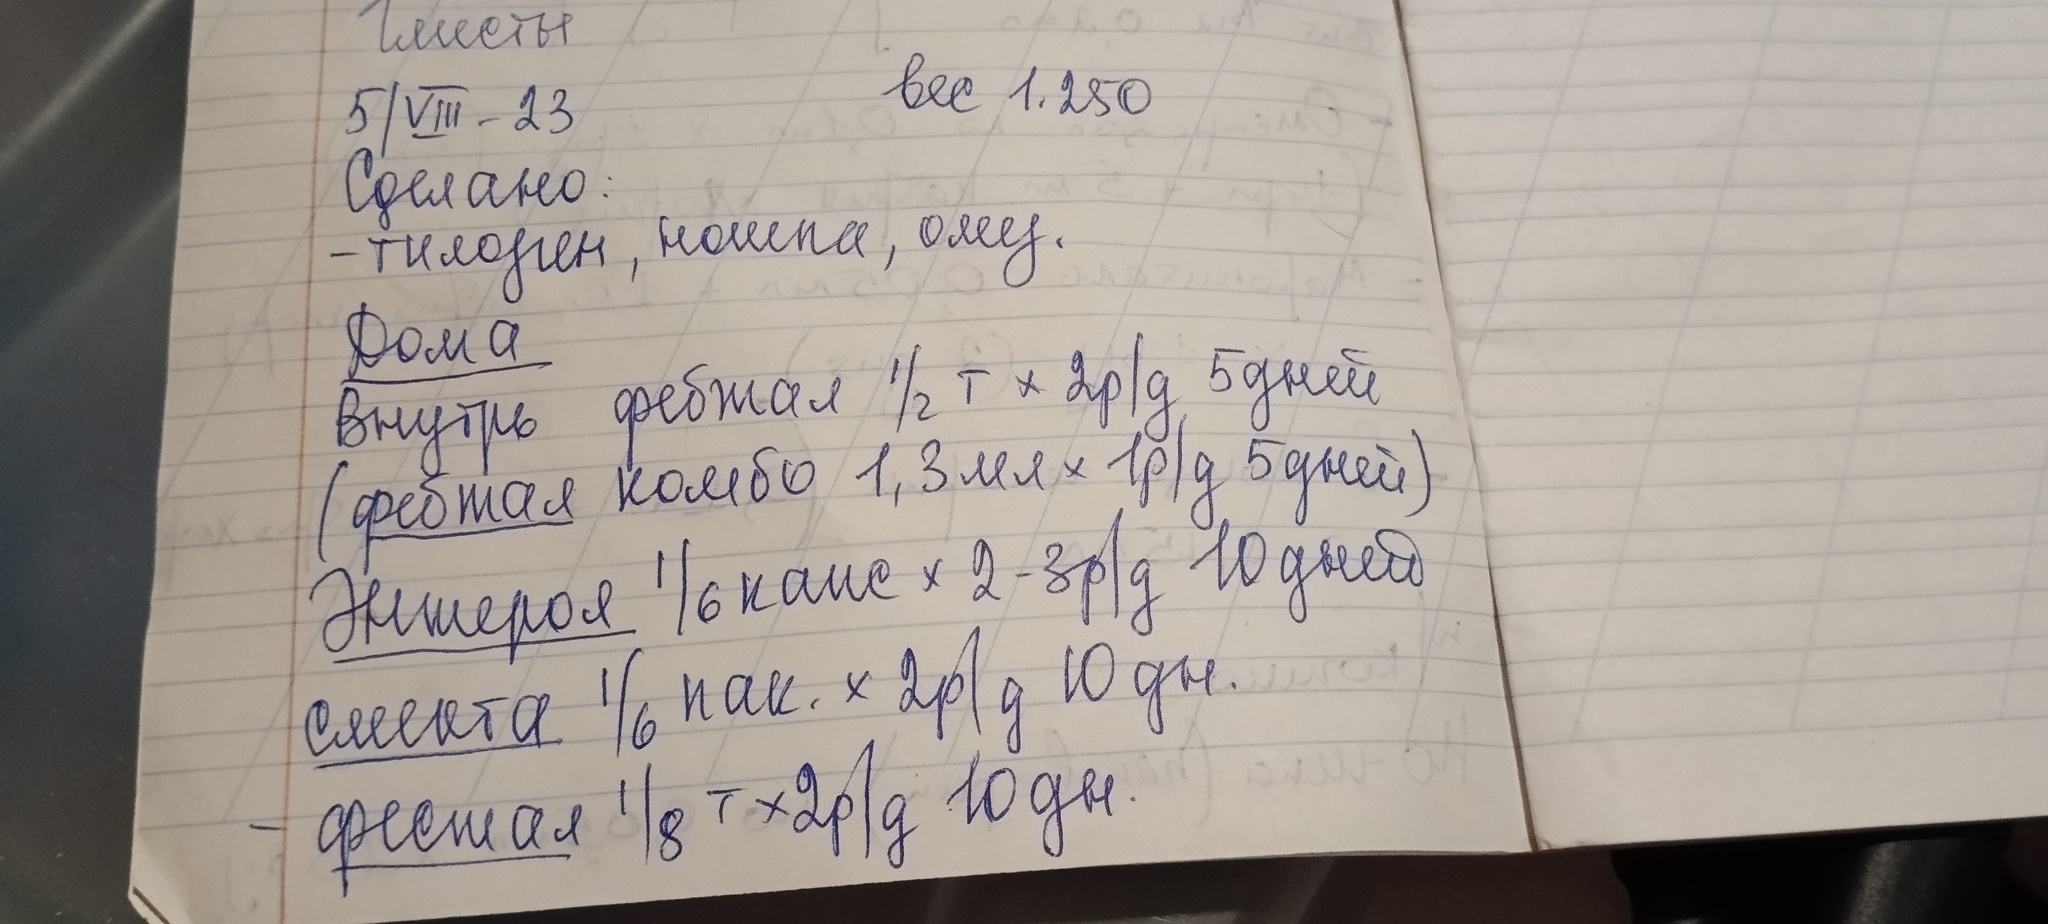 Глисты
5/VIII - 23 вес 1.250
Сделано:
- тилозин, ношпа, омез.
Дома
Внутрь фебтал 1/2 т x 2р/д 5 дней
(фебтал комбо 1,3 мл x 1р/д 5 дней)
Энтерол 1/6 капс x 2-3р/д 10 дней
смекта 1/6 пак. x 2р/д 10 дн.
- фестал 1/8 т x 2р/д 10 дн.